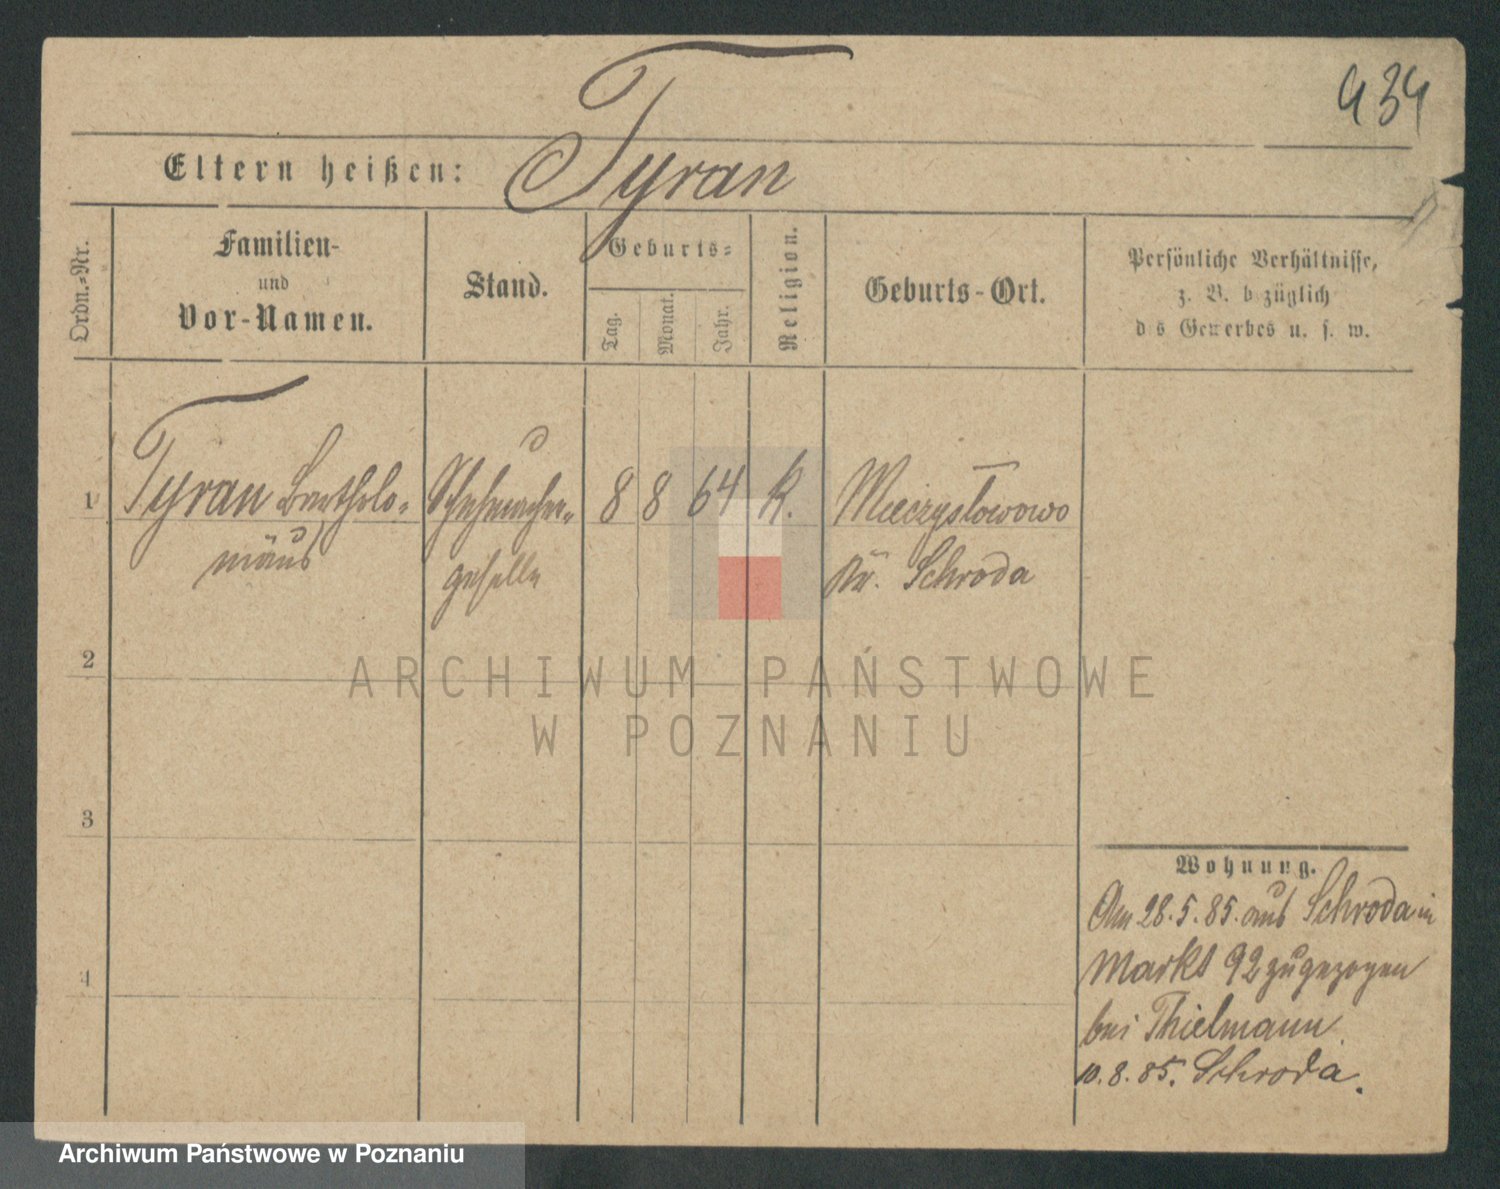 434
Tyran
Eltern heißen:
Ordn.-Nr.
Familien-
und
Vor-Namen.
Stand.
Geburts-
Tag.
Monat.
Jahr.
Religion.
Geburts-Ort.
Persönliche Verhältnisse,
z. B. b züglich
d s Gewerbes u. s. w.
1 Tyran Bartholo- Schuhmacher- 8 8 64 K. Mieczysłowowo
mäus geselle Kr. Schroda
2
3
4
Wohnung.
Am 28.5.85. aus Schroda in
Markt 92 zugezogen
bei Thielmann.
10.8.85. Schroda.
ARCHIWUM PAŃSTWOWE
W POZNANIU
Archiwum Państwowe w Poznaniu